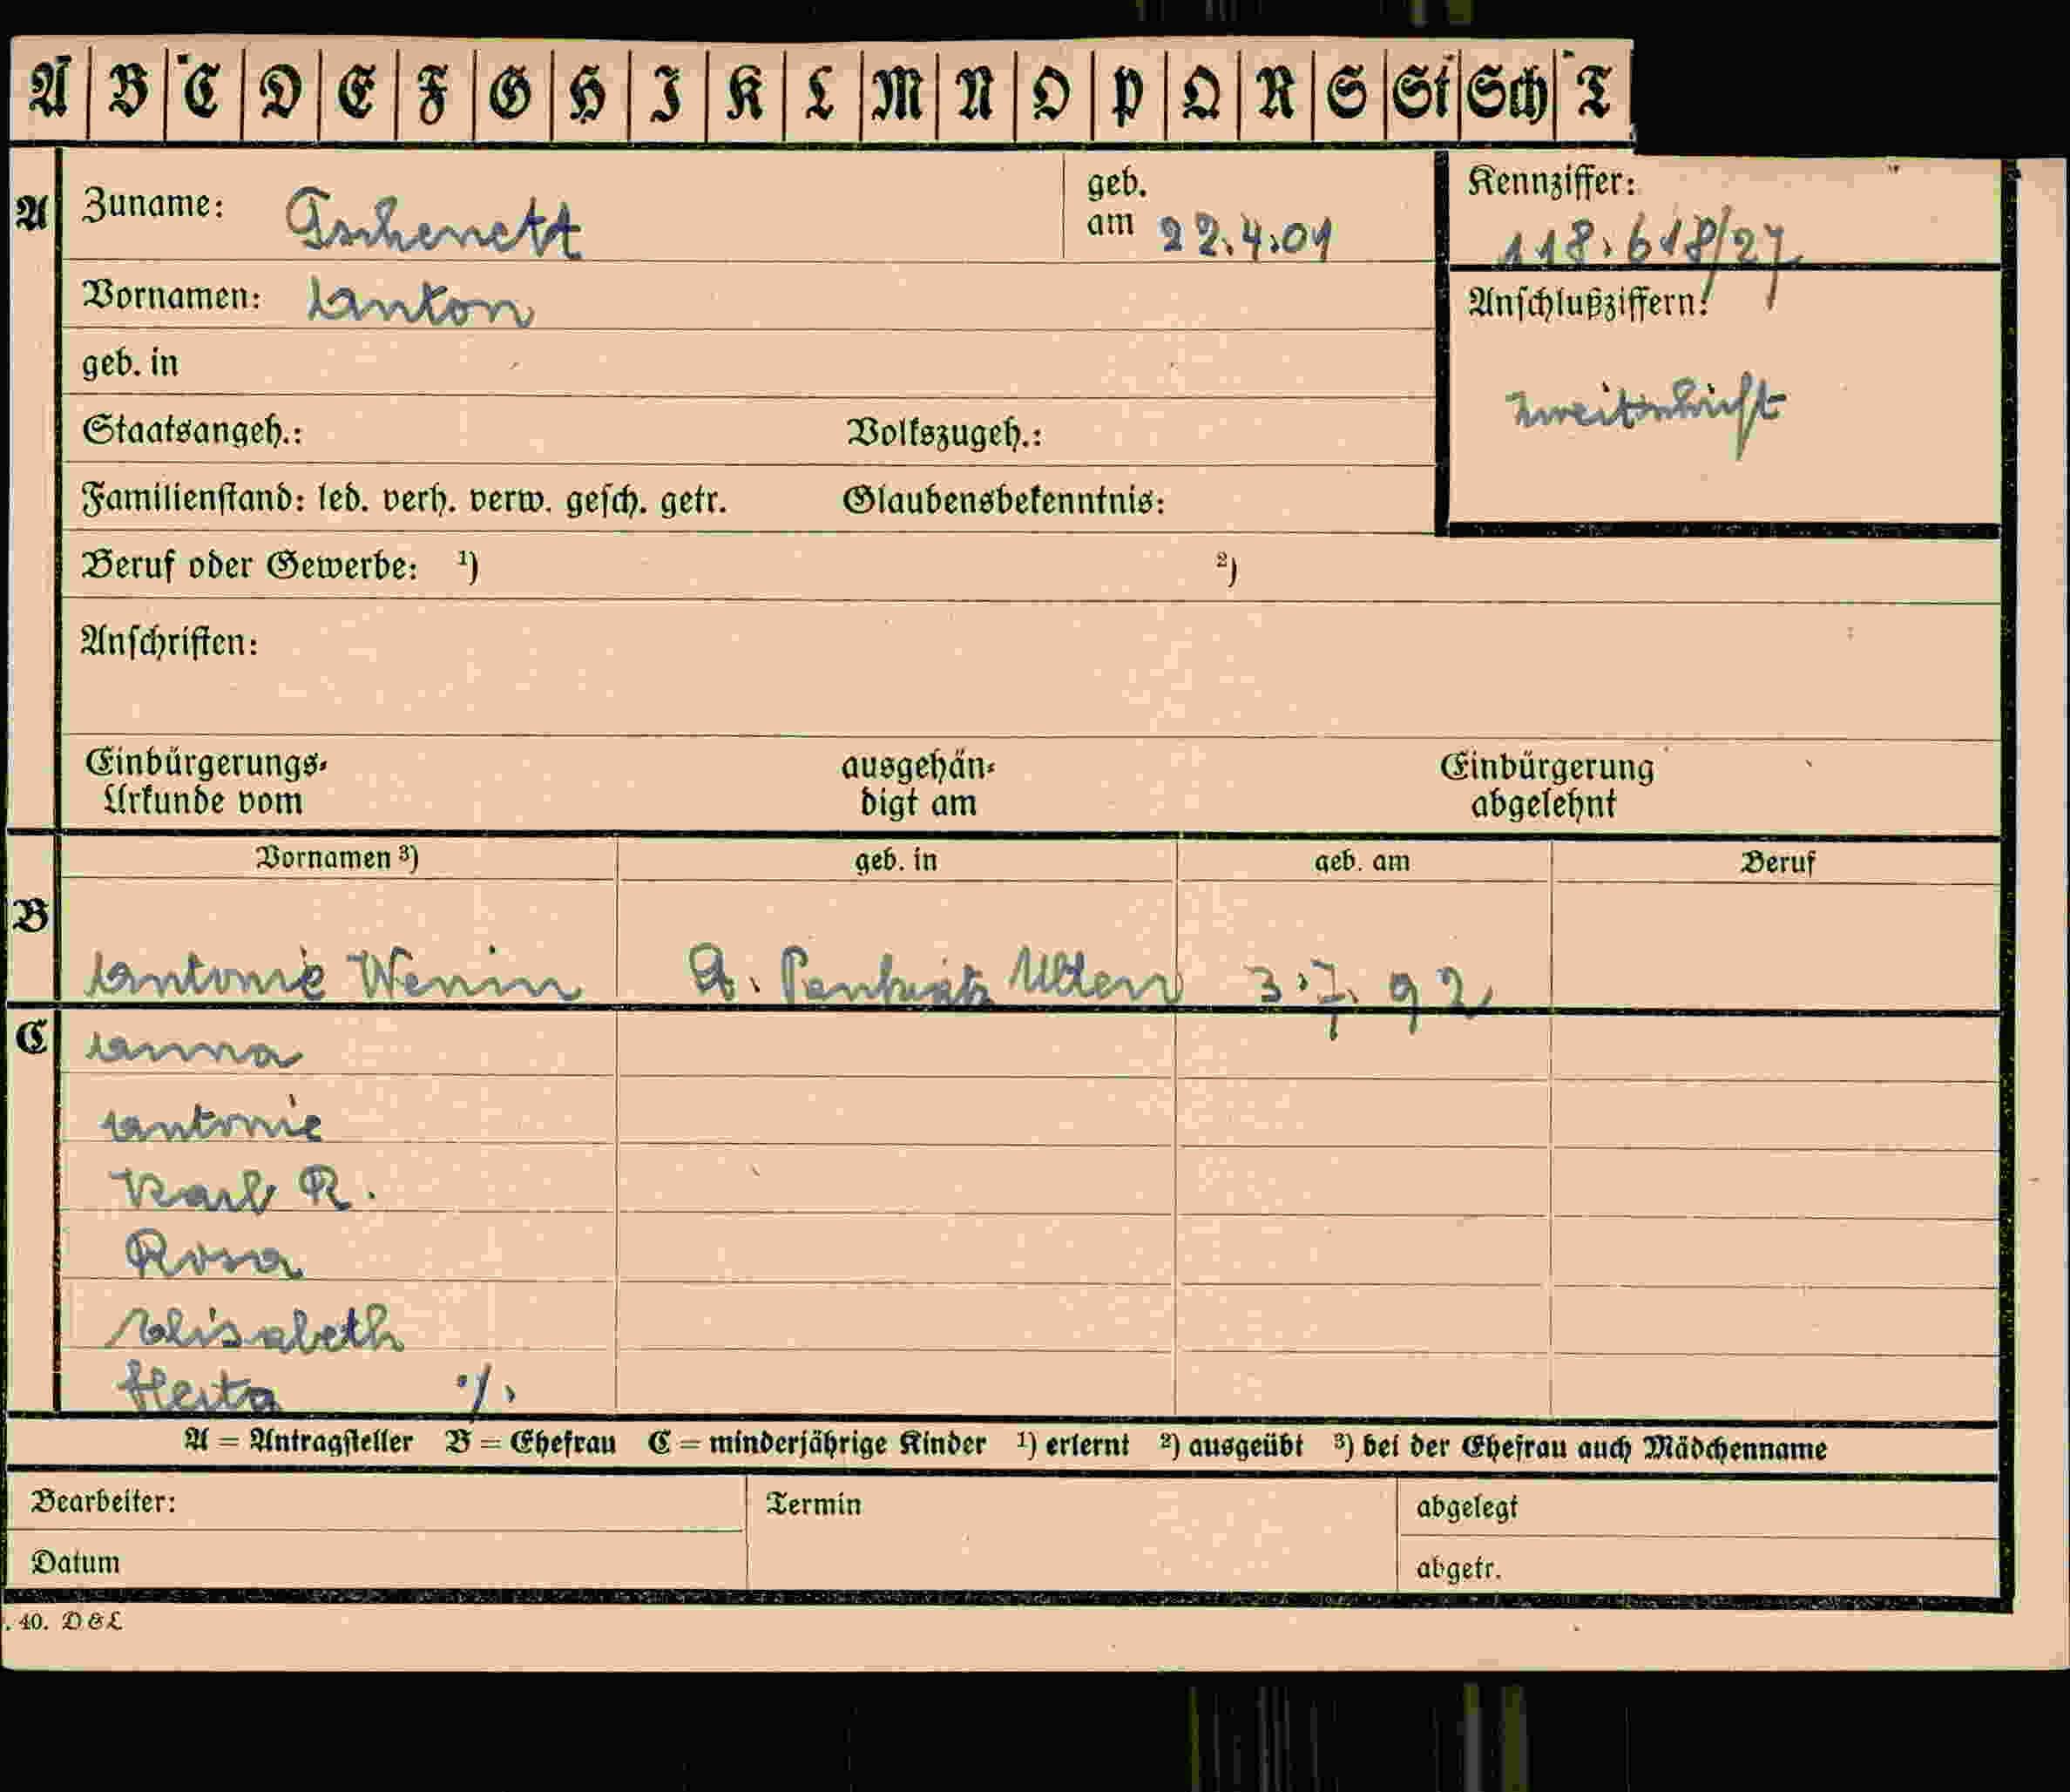 A B C D E F G H I K L M N O P Q R S St Sch T
A Zuname: Tschenett geb. am 22.4.01 Kennziffer: 118.618/27
Vornamen: Anton Anschlußziffern:
geb. in
Zweitschrift
Staatsangeh.: Volkszugeh.:
Familienstand: led. verh. verw. gesch. getr. Glaubensbekenntnis:
Beruf oder Gewerbe: ¹) ²)
Anschriften:
Einbürgerungs- ausgehän- Einbürgerung
Urkunde vom digt am abgelehnt
Vornamen ³) geb. in geb. am Beruf
B
Antonie Wenin St. Pankratz Ulten 3.7.92
C Anna
Antonie
Karl R.
Rosa
Elisabeth
Herta ·/.
A = Antragsteller B = Ehefrau C = minderjährige Kinder ¹) erlernt ²) ausgeübt ³) bei der Ehefrau auch Mädchenname
Bearbeiter: Termin abgelegt
Datum abgetr.
. 40. D & L